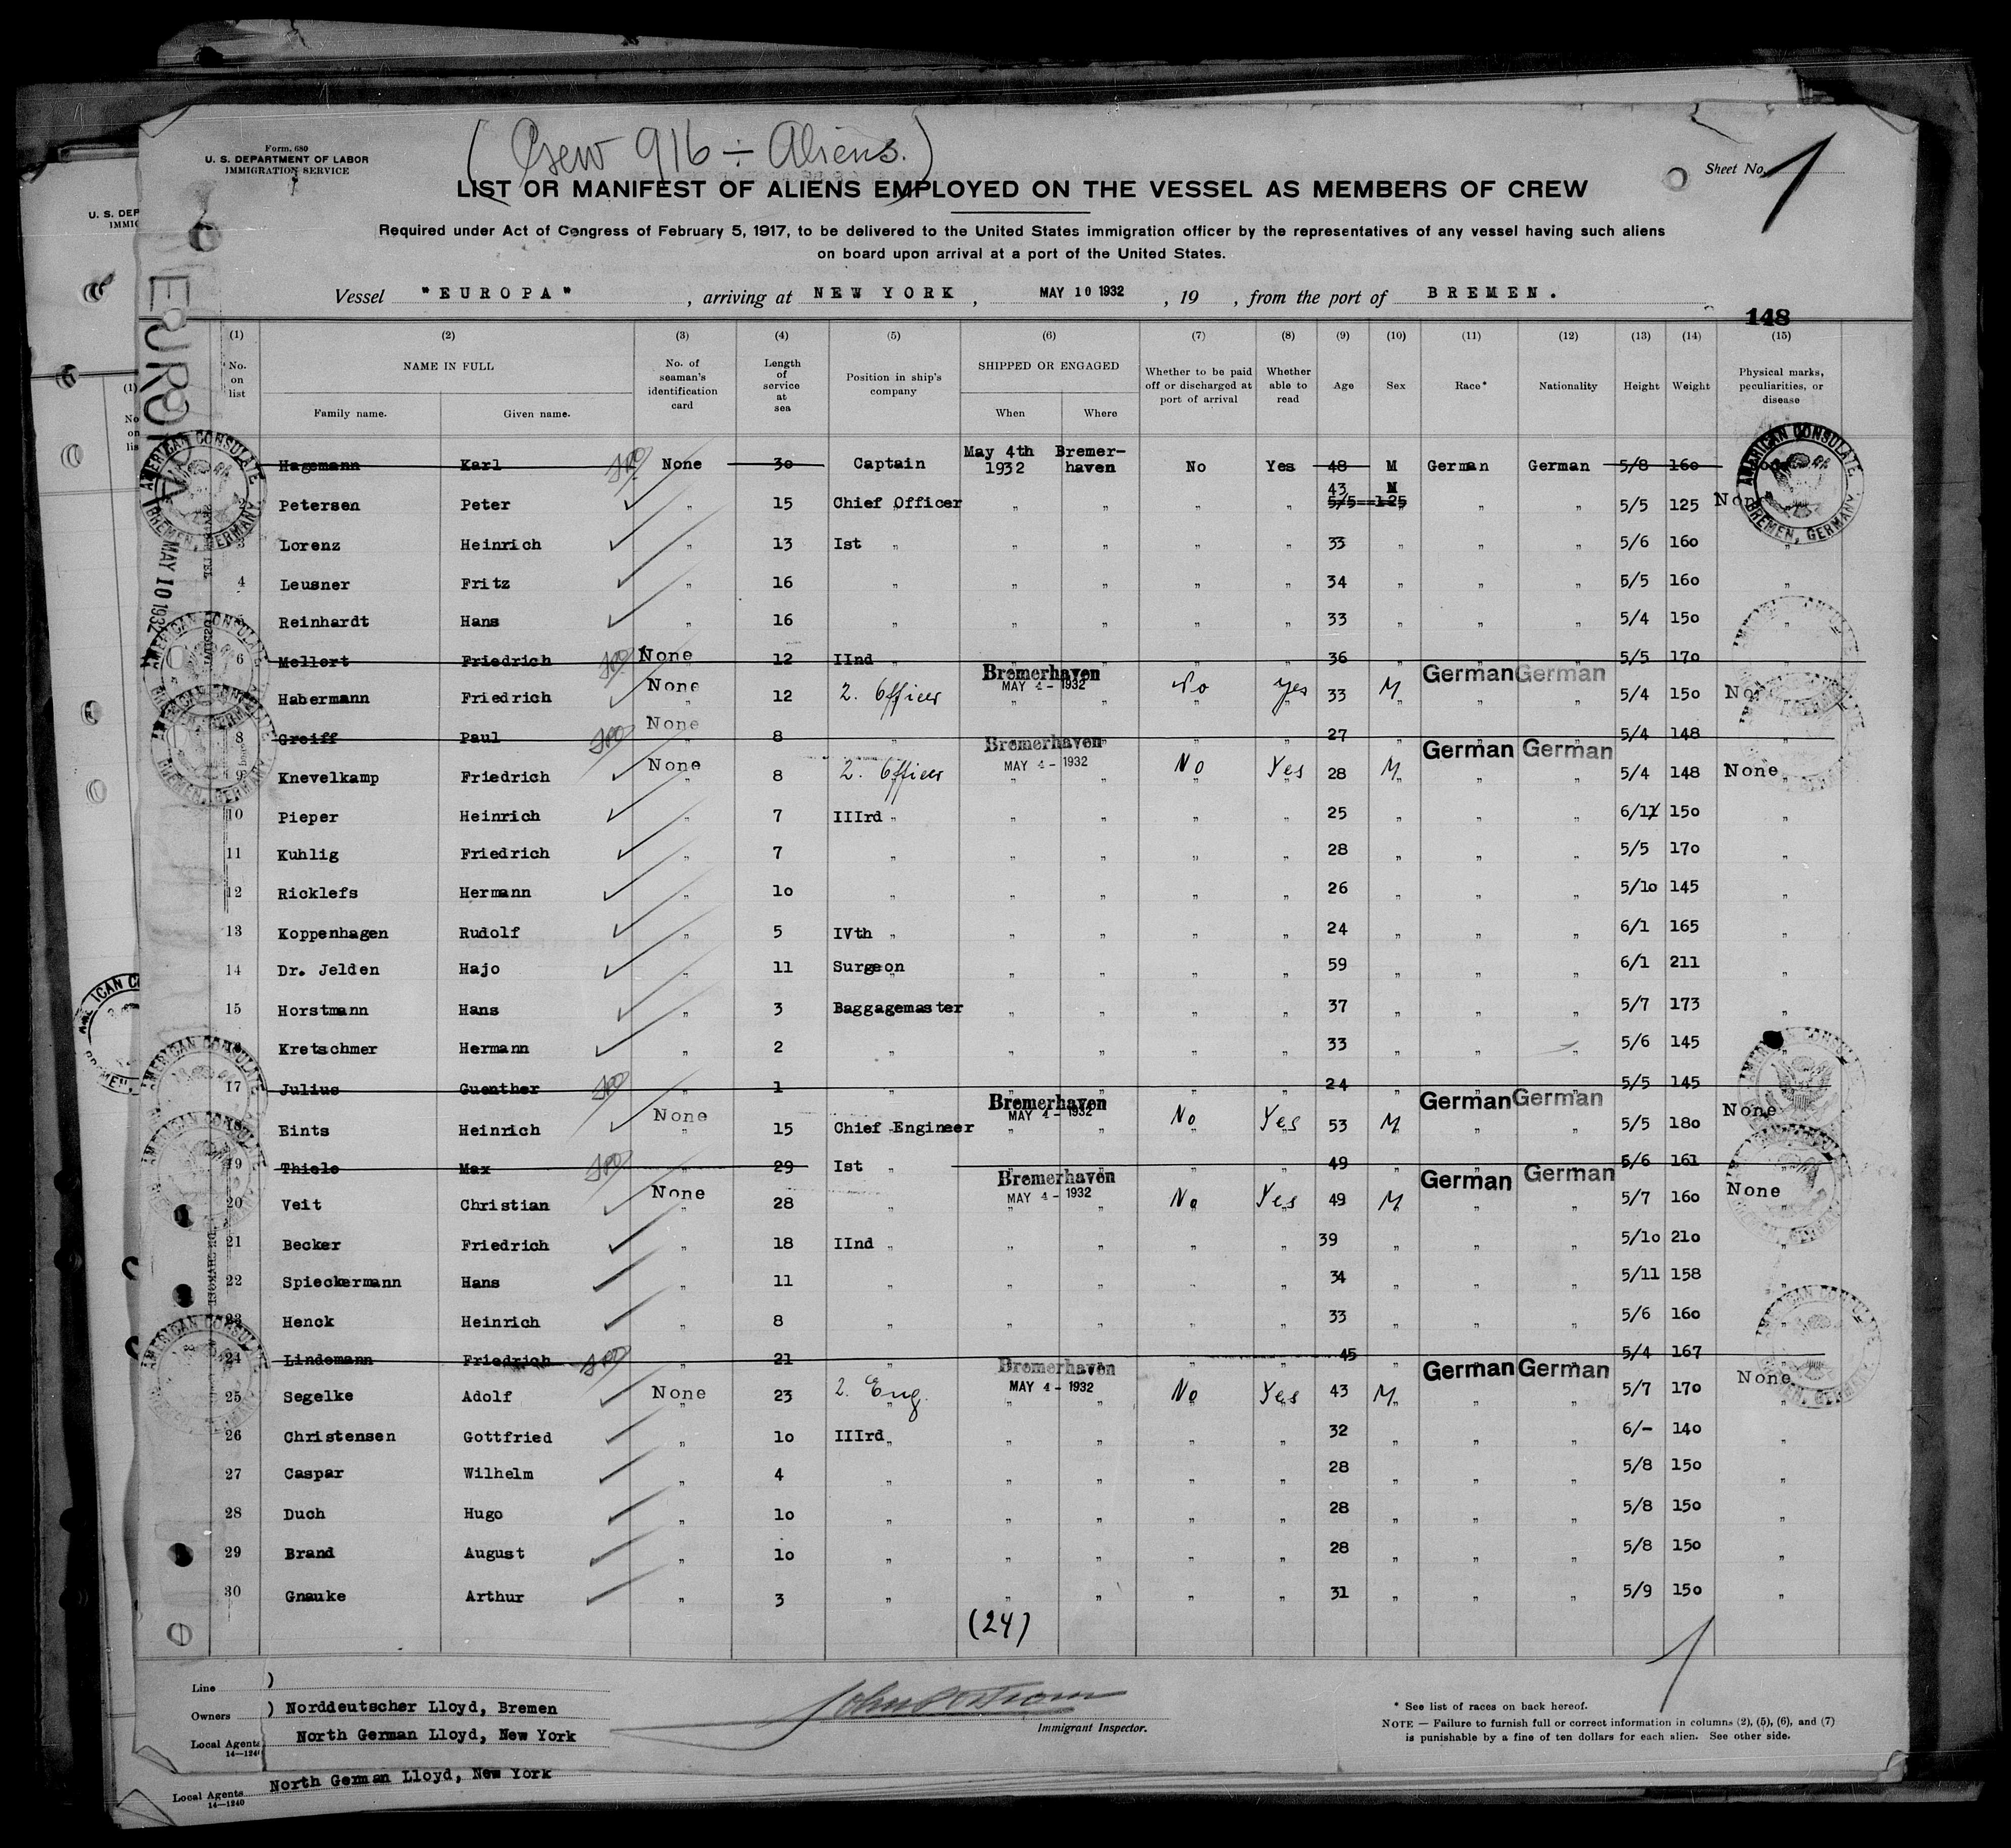 ( Crew 916 ÷ Aliens. )
Form. 680
U. S. DEPARTMENT OF LABOR
IMMIGRATION SERVICE
Sheet No. 1
LIST OR MANIFEST OF ALIENS EMPLOYED ON THE VESSEL AS MEMBERS OF CREW
Required under Act of Congress of February 5, 1917, to be delivered to the United States immigration officer by the representatives of any vessel having such aliens
on board upon arrival at a port of the United States.
Vessel "EUROPA", arriving at NEW YORK, MAY 10 1932, 19 , from the port of BREMEN.
148
(1) (2) (3) (4) (5) (6) (7) (8) (9) (10) (11) (12) (13) (14) (15)
No. on list NAME IN FULL Family name. Given name. No. of seaman's identification card Length of service at sea Position in ship's company SHIPPED OR ENGAGED When Where Whether to be paid off or discharged at port of arrival Whether able to read Age Sex Race* Nationality Height Weight Physical marks, peculiarities, or disease
Hagemann Karl None 30 Captain May 4th 1932 Bremer-haven No Yes 48 M German German 5/8 160
43 M
2 Petersen Peter " 15 Chief Officer " " " " 5/5 125 " " 5/5 125 None
3 Lorenz Heinrich " 13 Ist " " " " " 33 " " " 5/6 160 "
4 Leusner Fritz " 16 " " " " " 34 " " " 5/5 160 "
Reinhardt Hans " 16 " " " " " 33 " " " 5/4 150 "
6 Mellert Friedrich None 12 IInd " " " " " 36 " " " 5/5 170
Habermann Friedrich None 12 2. Officer Bremerhaven MAY 4 - 1932 No Yes 33 M German German 5/4 150 None
8 Greiff Paul None 8 " " " " " 27 " " " 5/4 148 "
9 Knevelkamp Friedrich None 8 2. Officer Bremerhaven MAY 4 - 1932 No Yes 28 M German German 5/4 148 None
10 Pieper Heinrich " 7 IIIrd " " " " " 25 " " " 6/11 150 "
11 Kuhlig Friedrich " 7 " " " " " 28 " " " 5/5 170 "
12 Ricklefs Hermann " 10 " " " " " 26 " " " 5/10 145 "
13 Koppenhagen Rudolf " 5 IVth " " " " " 24 " " " 6/1 165 "
14 Dr. Jelden Hajo " 11 Surgeon " " " " 59 " " " 6/1 211 "
15 Horstmann Hans " 3 Baggagemaster " " " " 37 " " " 5/7 173 "
Kretschmer Hermann " 2 " " " " " 33 " " " 5/6 145 "
17 Julius Guenther " 1 " " " " " 24 " " " 5/5 145
Eints Heinrich None 15 Chief Engineer Bremerhaven MAY 4 - 1932 No Yes 53 M German German 5/5 180 None
19 Thiele Max 29 Ist " " " " " 49 " " " 5/6 161
20 Veit Christian None 28 " Bremerhaven MAY 4 - 1932 No Yes 49 M German German 5/7 160 None
21 Becker Friedrich " 18 IInd " " " " " 39 " " " 5/10 210 "
22 Spieckermann Hans " 11 " " " " " 34 " " " 5/11 158 "
23 Henck Heinrich " 8 " " " " " 33 " " " 5/6 160 "
24 Lindemann Friedrich " 21 " " " " " 45 " " " 5/4 167
25 Segelke Adolf None 23 2. Eng. Bremerhaven MAY 4 - 1932 No Yes 43 M German German 5/7 170 None
26 Christensen Gottfried " 10 IIIrd " " " " " 32 " " " 6/- 140 "
27 Caspar Wilhelm " 4 " " " " " 28 " " " 5/8 150 "
28 Duch Hugo " 10 " " " " " 28 " " " 5/8 150 "
29 Brand August " 10 " " " " " 28 " " " 5/8 150 "
30 Gnauke Arthur " 3 " " " " " 31 " " " 5/9 150 "
(24)
Line )
Owners ) Norddeutscher Lloyd, Bremen
Local Agents North German Lloyd, New York
14—1240
Immigrant Inspector.
* See list of races on back hereof.
NOTE — Failure to furnish full or correct information in columns (2), (5), (6), and (7)
is punishable by a fine of ten dollars for each alien. See other side.
Local Agents North German Lloyd, New York
14—1240
EUROPA
MAY 10 1932
AMERICAN CONSULATE
BREMEN, GERMANY